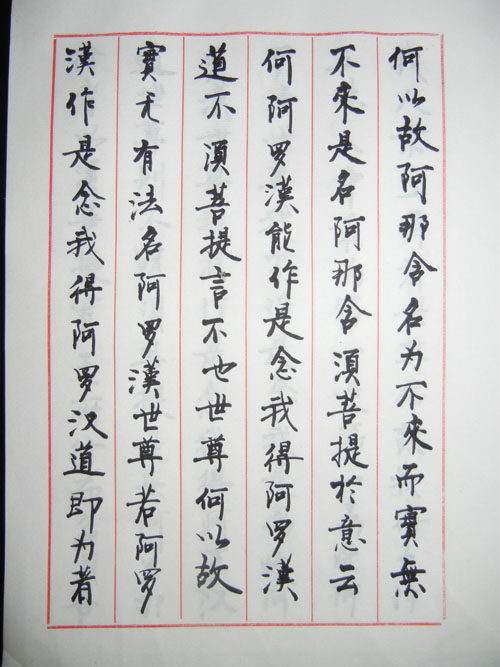 何以故阿那含名为不來而實無
不來是名阿那含須菩提於意云
何阿罗漢能作是念我得阿罗漢
道不須菩提言不也世尊何以故
實无有法名阿罗漢世尊若阿罗
漢作是念我得阿罗汉道即为着